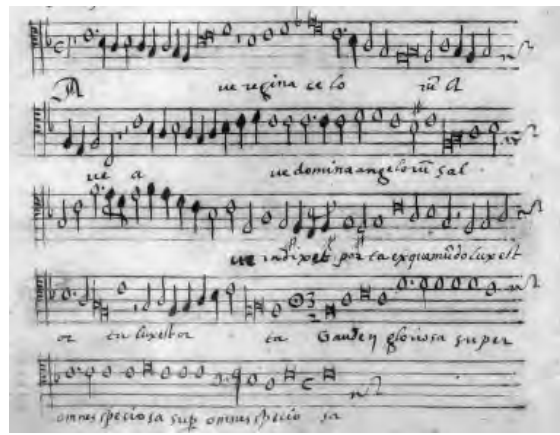 A ve regina ce lo rū A
ve a ve domina angelorū sal
ve porta ex qua mūdo lux est
or ta lux est or ta Gaude gloriosa super
omnes speciosa sup omnes specio sa